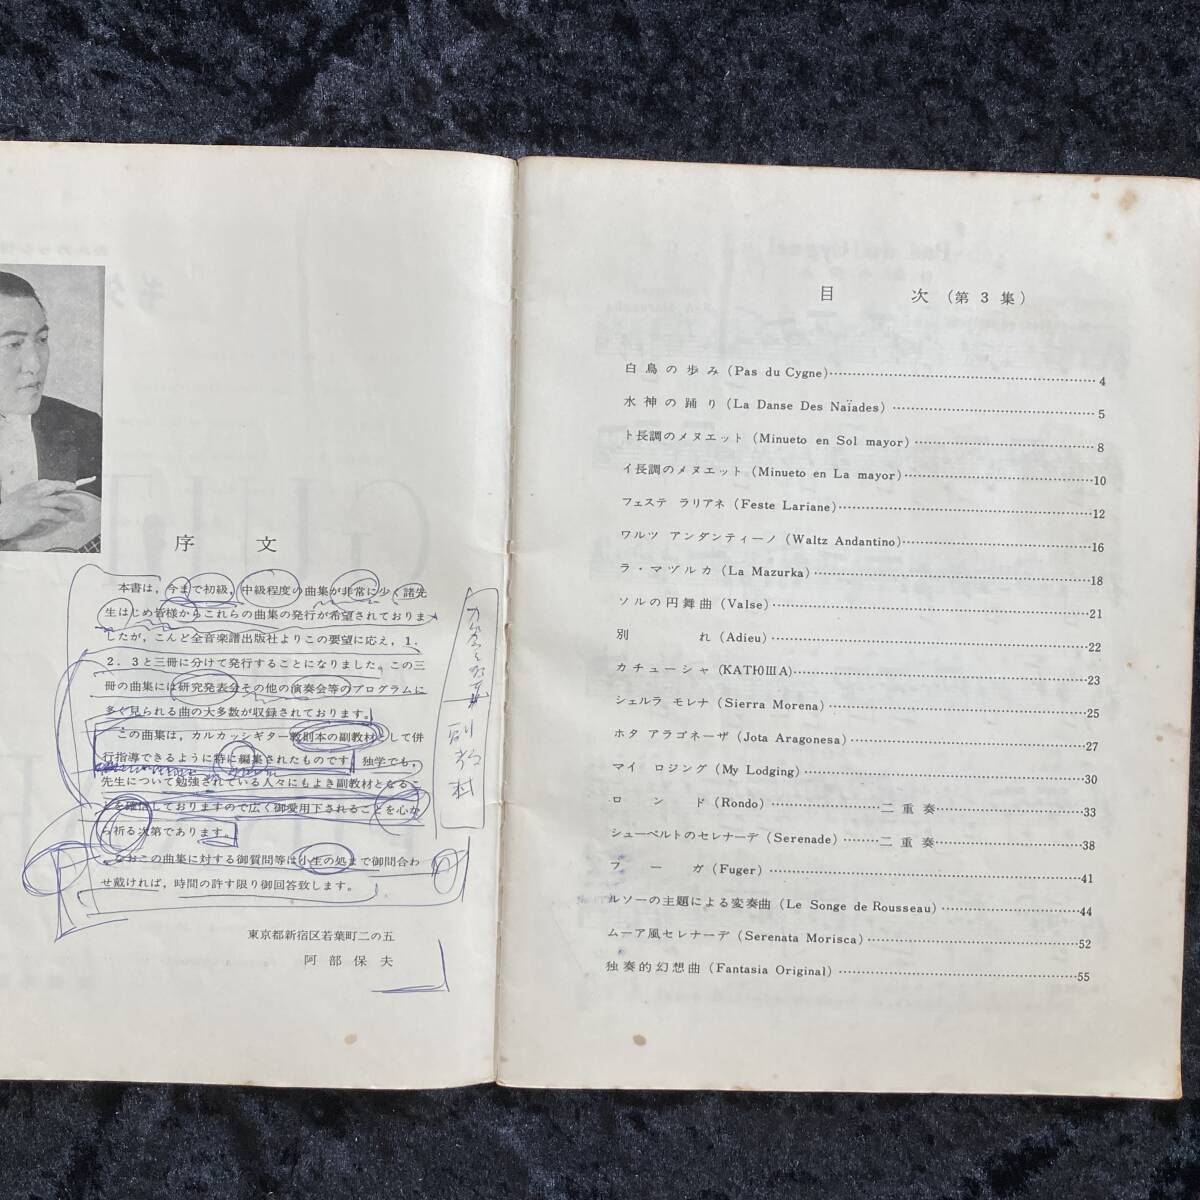 序文
本書は，今まで初級，中級程度の曲集が非常に少く諸先
生はじめ皆様からこれらの曲集の発行が希望されておりま
したが，こんど全音楽譜出版社よりこの要望に応え，1．
2．3と三冊に分けて発行することになりました。この三
冊の曲集には研究発表会その他の演奏会等のプログラムに
多く見られる曲の大多数が収録されております。
この曲集は，カルカッシギター教則本の副教材として併
行指導できるように特に編集されたものです。独学でも，
先生について勉強されている人々にもよき副教材となるこ
とを確信しておりますので広く御愛用下されることを心か
ら祈る次第であります。
なおこの曲集に対する御質問等は小生の処まで御問合わ
せ戴ければ，時間の許す限り御回答致します。
東京都新宿区若葉町二の五
阿部保夫
副教材
目次（第3集）
白鳥の歩み（Pas du Cygne）……4
水神の踊り（La Danse Des Naïades）……5
ト長調のメヌエット（Minueto en Sol mayor）……8
イ長調のメヌエット（Minueto en La mayor）……10
フェステ ラリアネ（Feste Lariane）……12
ワルツ アンダンティーノ（Waltz Andantino）……16
ラ・マヅルカ（La Mazurka）……18
ソルの円舞曲（Valse）……21
別れ（Adieu）……22
カチューシャ（KATЮША）……23
シェルラ モレナ（Sierra Morena）……25
ホタ アラゴネーザ（Jota Aragonesa）……27
マイ ロジング（My Lodging）……30
ロンド（Rondo）……二重奏……33
シューベルトのセレナーデ（Serenade）……二重奏……38
フーガ（Fuger）……41
ルソーの主題による変奏曲（Le Songe de Rousseau）……44
ムーア風セレナーデ（Serenata Morisca）……52
独奏的幻想曲（Fantasia Original）……55